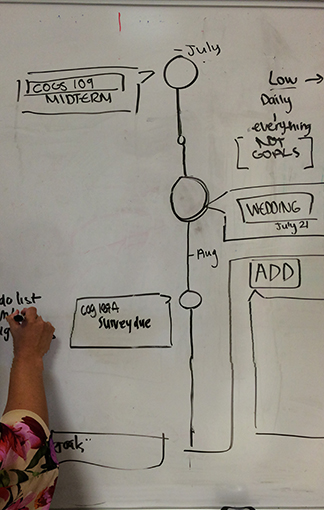 July
COGS 109
MIDTERM
Low
Daily
everything
NOT
GOALS
WEDDING
July 21
Aug
ADD
do list
Survey due